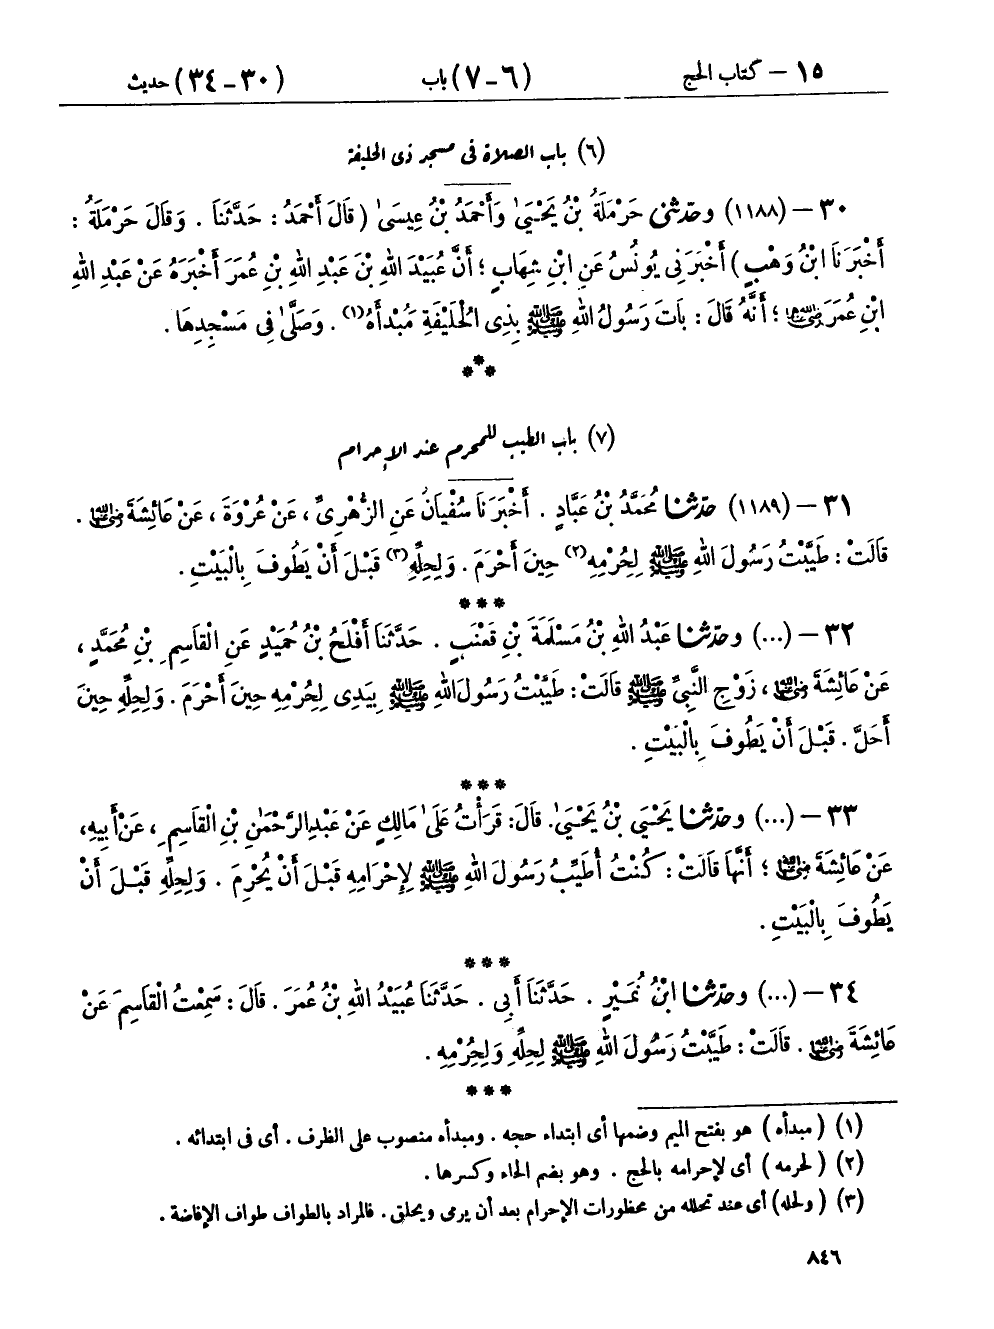 ١٥ – كتاب الحج (٦ – ٧) باب (٣٠ – ٣٤) حديث
(٦) باب الصلاة فى مسجد ذى الحليفة
٣٠ – (١١٨٨) وحدثنى حَرْمَلَةُ بْنُ يَحْيَىٰ وَأَحْمَدُ بْنُ عِيسَىٰ ( قَالَ أَحْمَدُ : حَدَّثَنَا . وَقَالَ حَرْمَلَةُ :
أَخْبَرَنَا ابْنُ وَهْبٍ) أَخْبَرَنِى يُونُسُ عَنِ ابْنِ شِهَابٍ ؛ أَنَّ عُبَيْدَ اللهِ بْنَ عَبْدِ اللهِ بْنِ عُمَرَ أَخْبَرَهُ عَنْ عَبْدِ اللهِ
ابْنِ عُمَرَ رضي الله عنهما ؛ أَنَّهُ قَالَ : بَاتَ رَسُولُ اللهِ ﷺ بِذِى الْحُلَيْفَةِ مُبْدَأَهُ(١) . وَصَلَّىٰ فِى مَسْجِدِهَا .
***
(٧) باب الطيب للمحرم عند الإحرام
٣١ – (١١٨٩) حدثنا مُحَمَّدُ بْنُ عَبَّادٍ . أَخْبَرَنَا سُفْيَانُ عَنِ الزُّهْرِىِّ ، عَنْ عُرْوَةَ ، عَنْ عَائِشَةَ رضي الله عنها .
قَالَتْ : طَيَّبْتُ رَسُولَ اللهِ ﷺ لِحُرْمِهِ(٢) حِينَ أَحْرَمَ . وَلِحِلِّهِ(٣) قَبْلَ أَنْ يَطُوفَ بِالْبَيْتِ .
***
٣٢ – (...) وحدثنا عَبْدُ اللهِ بْنُ مَسْلَمَةَ بْنِ قَعْنَبٍ . حَدَّثَنَا أَفْلَحُ بْنُ حُمَيْدٍ عَنِ الْقَاسِمِ بْنِ مُحَمَّدٍ ،
عَنْ عَائِشَةَ رضي الله عنها ، زَوْجِ النَّبِىِّ ﷺ قَالَتْ : طَيَّبْتُ رَسُولَ اللهِ ﷺ بِيَدِى لِحُرْمِهِ حِينَ أَحْرَمَ . وَلِحِلِّهِ حِينَ
أَحَلَّ . قَبْلَ أَنْ يَطُوفَ بِالْبَيْتِ .
***
٣٣ – (...) وحدثنا يَحْيَى بْنُ يَحْيَىٰ. قَالَ: قَرَأْتُ عَلَىٰ مَالِكٍ عَنْ عَبْدِ الرَّحْمَٰنِ بْنِ الْقَاسِمِ ، عَنْ أَبِيهِ،
عَنْ عَائِشَةَ رضي الله عنها ؛ أَنَّهَا قَالَتْ : كُنْتُ أُطَيِّبُ رَسُولَ اللهِ ﷺ لِإِحْرَامِهِ قَبْلَ أَنْ يُحْرِمَ . وَلِحِلِّهِ قَبْلَ أَنْ
يَطُوفَ بِالْبَيْتِ .
***
٣٤ – (...) وحدثنا ابْنُ نُمَيْرٍ . حَدَّثَنَا أَبِى . حَدَّثَنَا عُبَيْدُ اللهِ بْنُ عُمَرَ . قَالَ : سَمِعْتُ الْقَاسِمَ عَنْ
عَائِشَةَ رضي الله عنها . قَالَتْ : طَيَّبْتُ رَسُولَ اللهِ ﷺ لِحِلِّهِ وَلِحُرْمِهِ .
***
(١) ( مبدأه ) هو بفتح الميم وضمها أى ابتداء حجه . ومبدأه منصوب على الظرف . أى فى ابتدائه .
(٢) ( لحرمه ) أى لإحرامه بالحج . وهو بضم الحاء وكسرها .
(٣) ( ولحله) أى عند تحلله من محظورات الإحرام بعد أن يرمى ويحلق . فالمراد بالطواف طواف الإفاضة .
٨٤٦